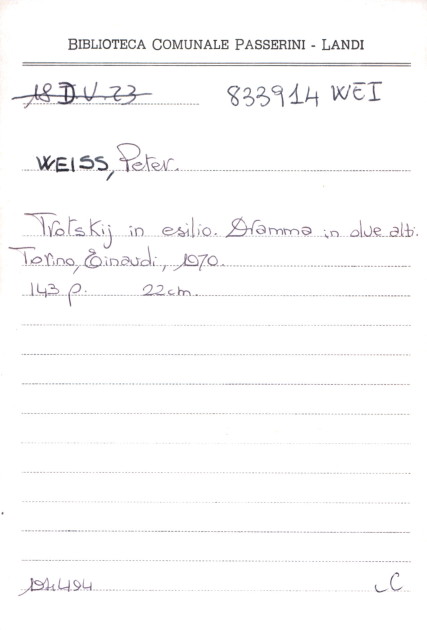 BIBLIOTECA COMUNALE PASSERINI - LANDI
18 D.V.23 833914 WEI
WEISS, Peter.
Trotskij in esilio. Dramma in due atti.
Torino, Einaudi, 1970.
143 p. 22cm.
C